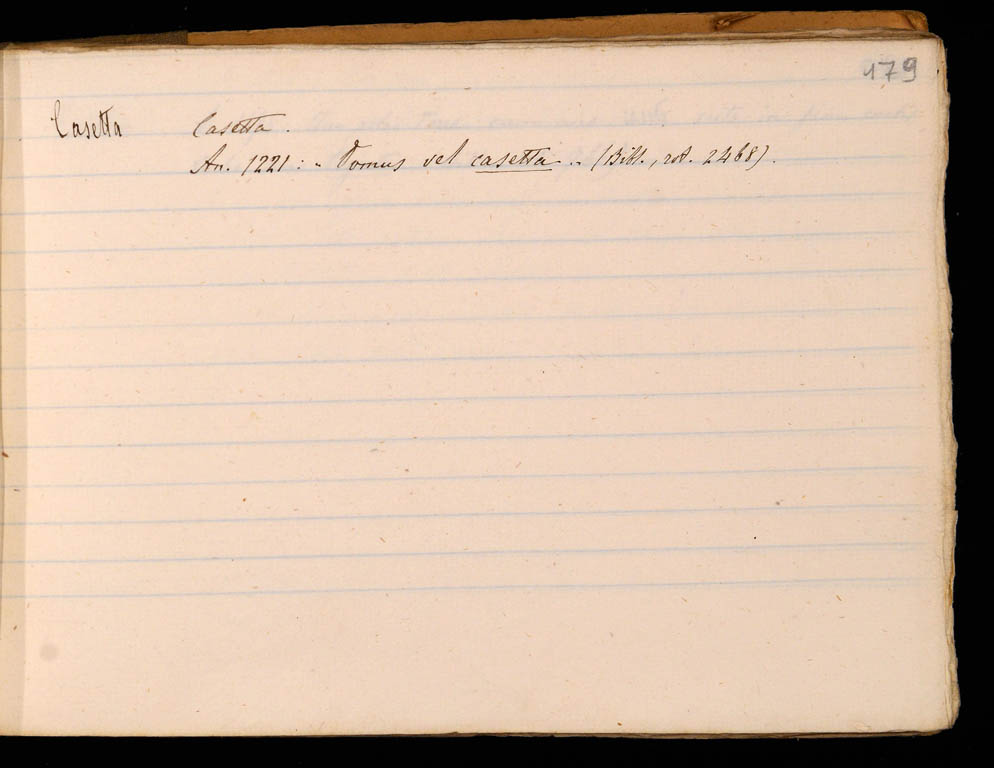 179
Casetta
Casetta.
An. 1221: " Domus vel casetta. " (Bibl., rot. 2468).